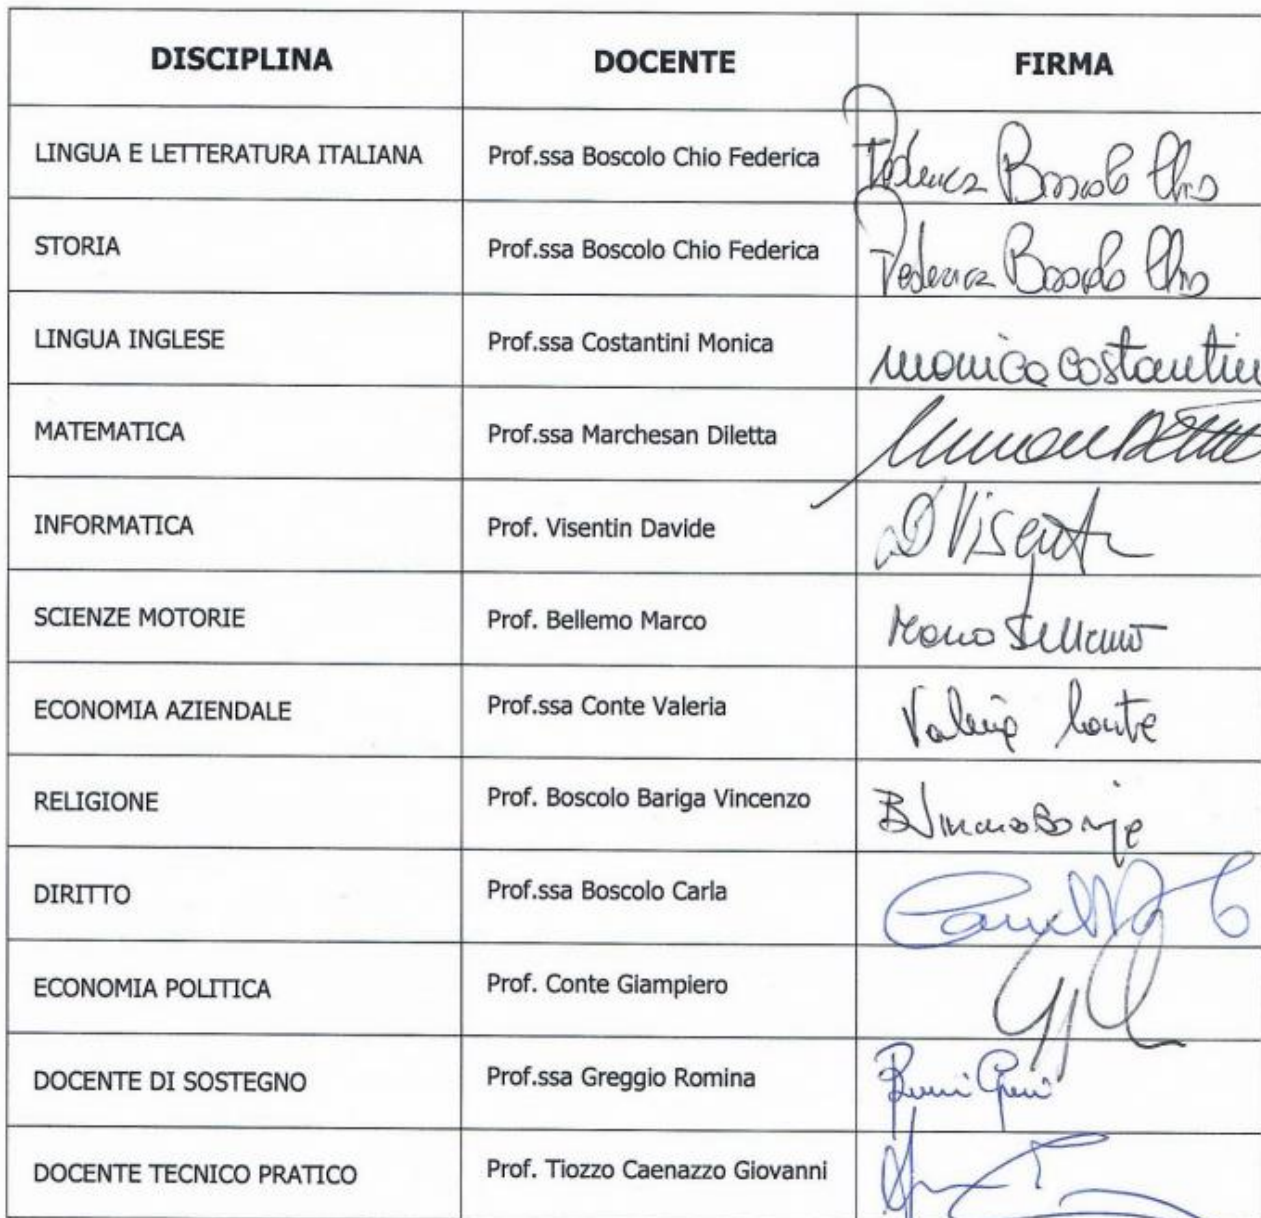 DISCIPLINA DOCENTE FIRMA
LINGUA E LETTERATURA ITALIANA Prof.ssa Boscolo Chio Federica Federica Boscolo Chio
STORIA Prof.ssa Boscolo Chio Federica Federica Boscolo Chio
LINGUA INGLESE Prof.ssa Costantini Monica monica costantini
MATEMATICA Prof.ssa Marchesan Diletta
INFORMATICA Prof. Visentin Davide D Visentin
SCIENZE MOTORIE Prof. Bellemo Marco Marco Bellemo
ECONOMIA AZIENDALE Prof.ssa Conte Valeria Valeria Conte
RELIGIONE Prof. Boscolo Bariga Vincenzo
DIRITTO Prof.ssa Boscolo Carla
ECONOMIA POLITICA Prof. Conte Giampiero
DOCENTE DI SOSTEGNO Prof.ssa Greggio Romina
DOCENTE TECNICO PRATICO Prof. Tiozzo Caenazzo Giovanni